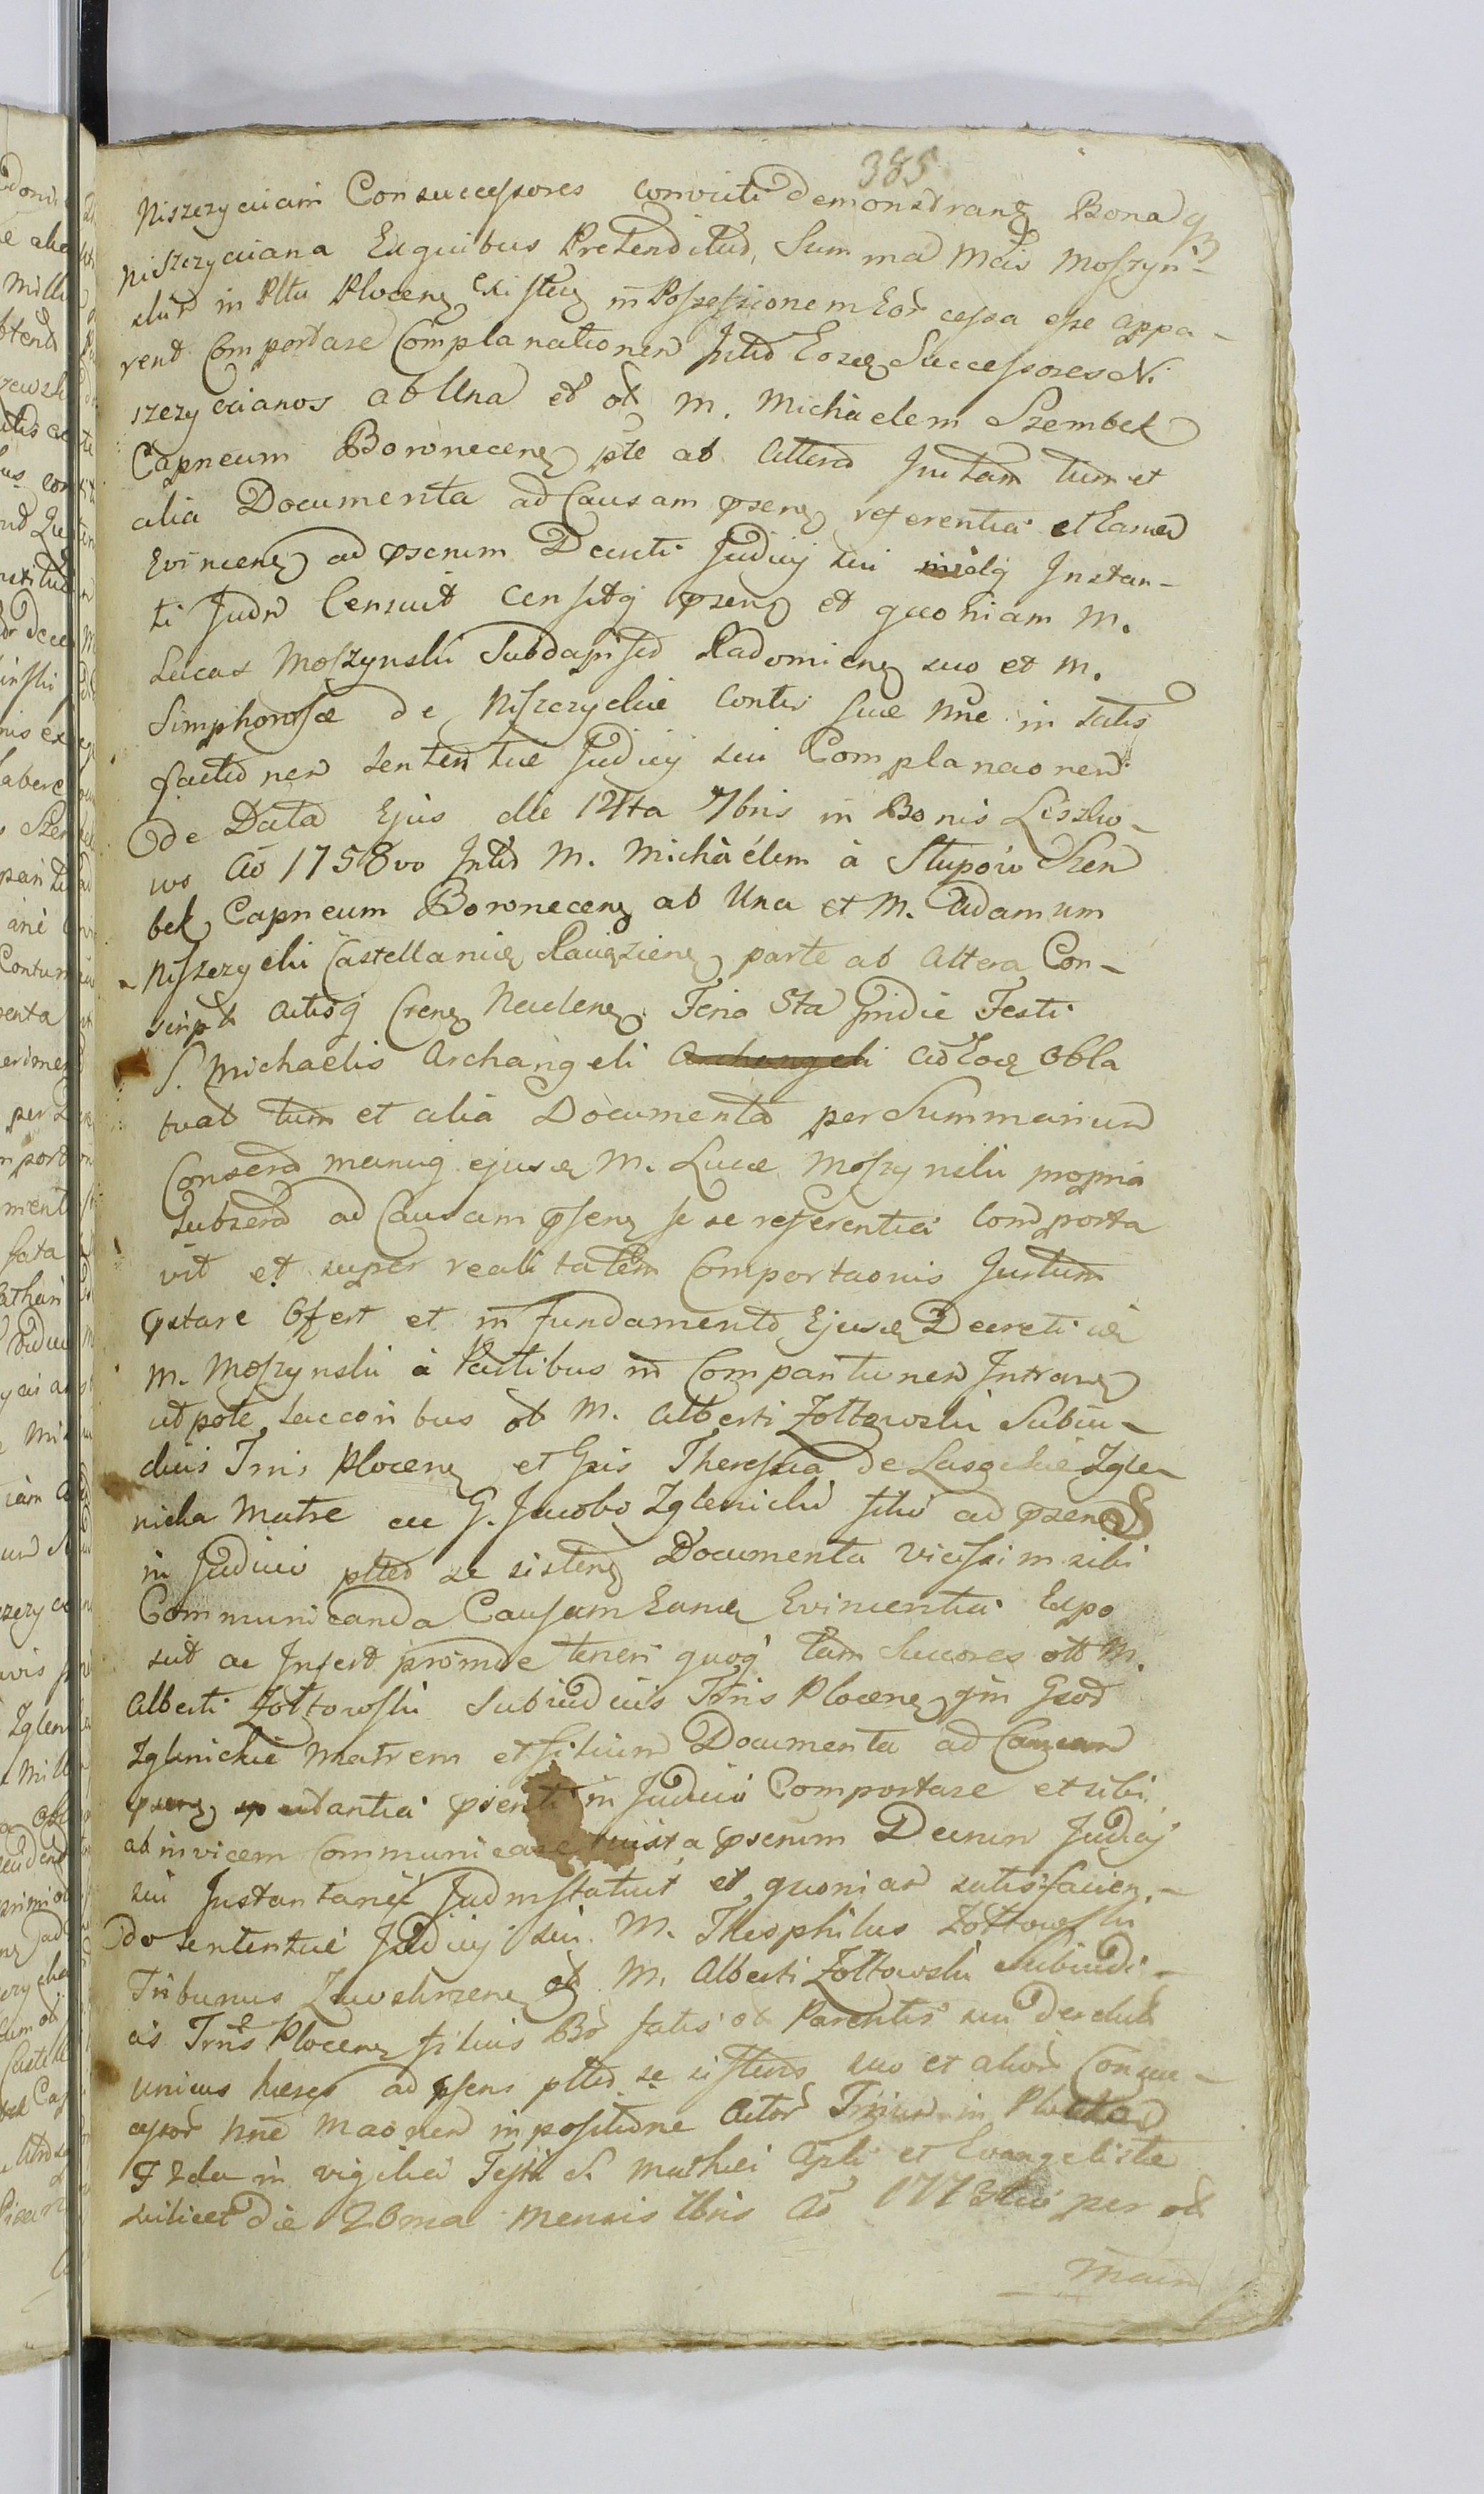 385
Niszczyciam Consuccessores convicti demonstranẽ Bona q3
Niszczyciana Ex quibus Pretenditur, Summa Mcis Moszyn-
skim in Pltu Plocenẽ Existenẽ in Possessionem Eor cessa esse appa-
rent Comportare Complanationem Inter Eosdẽ Successores Ni
szczycianos ab Una et ol M. Michaelem Szembek
Capneum Borownecenẽ pte ab Altera Initam tum et
alia Documenta ad Causam psenẽ referentia et Eamẽ
Evincenẽ ad psenem Decreti Judicij sui Instan-
ti Judm Censuit Censetq psenẽ et quoniam M.
Lucas Moszynski Subdapifer Radomienẽ suo et M.
Simphorosæ de Niszczyckie Contis suæ nne in satis
factionem Sententiæ Judicij sui Complanaonem
de Data Ejus die 14ta 7bris in Bonis Liszko-
wo Ao 1758vo Inter M. Michaélem à Słupów Szem
bek Capneum Borownecenẽ ab Una et M. Adamum
Niszczycki Castellanicẽ Raciązienẽ parte ab Altera Con-
script Actisq Crenẽ Neulenẽ Feria 5ta Pridie Festi
S. Michaelis Archangeli Archangeli ad Eoẽ Obla
tuat tum et alia Documenta per Summarium
Conserẽ manuq ejusdẽ M. Lucæ Moszynski propria
Subscrẽ ad Causam psenẽ se se referentia Comporta
vit et super realitatem Comportaonis Jurtum
pstare Ofert et in fundamento Ejusdẽ Decreti idẽ
M. Moszynski à Partibus in Comparitionem Intranẽ
utpote Succoribus ol M. Alberti Zołtowski Subiu-
dicis Trris Plocenẽ et Gsis Theressia de Lasockie Zgle-
nicka Matre ac G. Jacobo Zglenicki filio ad psens
in Judicio plter se sistenẽ Documenta vicissim sibi
Communicanda Causam Eamẽ Evincentia Expo
scit ac Infert proinde teneri quoq tam Succores ol M.
Alberti Zołtowski Subiudicis Trris Plocenẽ qm Gsod
Zglinickie Matrem et filium Documenta ad Causam
psenẽ spectantia psenti in Judicio Comportare et sibi
ab invicem Communicare iuxta psenem Decrum Judicij
sui Instantanei Judm statuit et quoniam satisfacien-
do sententiæ Judicij sui M. Theophilus Zołtowski
Tribunus Zawskrzenẽ ol M. Alberti Zołtowski Subiudi-
cis Trris Plocenẽ filius Br fatis ol Parentis sui
unicus hæres ad psens plter se sistens suo et alior Consuc-
cessor nne Maonem in positione Actor Trrium in Plocko
F 2da in vigilia Festi S. Mathei Apli et Evangelistæ
scilicet die 20ma Mensis 7bris Ao per ol